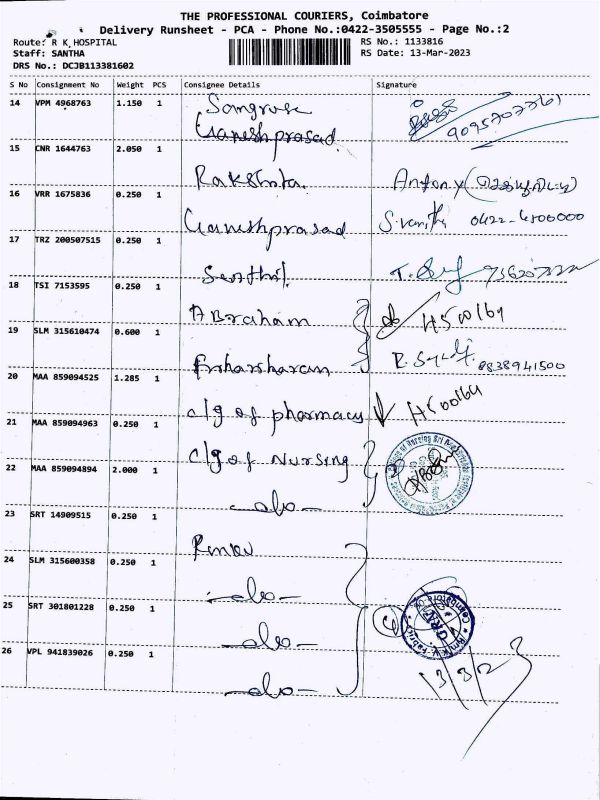 THE PROFESSIONAL COURIERS, Coimbatore
Delivery Runsheet - PCA - Phone No.:0422-3505555 - Page No.:2
Route: R K HOSPITAL
RS No.: 1133816
Staff: SANTHA
RS Date: 13-Mar-2023
DRS No.: DCJB113381602
S No Consignment No Weight PCS Consignee Details Signature
14 VPM 4968763 1.150 1
Ganeshprasad 9095702761
15 CNR 1644763 2.050 1
Rakshita Antony
16 VRR 1675836 0.250 1
Ganeshprasad 0422-4500000
17 TRZ 200507515 0.250 1
Senthil
18 TSI 7153595 0.250 1
Abraham H500169
19 SLM 315610474 0.600 1
8838941500
20 MAA 859094525 1.285 1
c/g of pharmacy H500164
21 MAA 859094963 0.250 1
c/g of Nursing
22 MAA 859094894 2.000 1
-do-
23 SRT 14909515 0.250 1
24 SLM 315600358 0.250 1
-do-
25 SRT 301801228 0.250 1
-do-
26 VPL 941839026 0.250 1
-do-
13/3/23